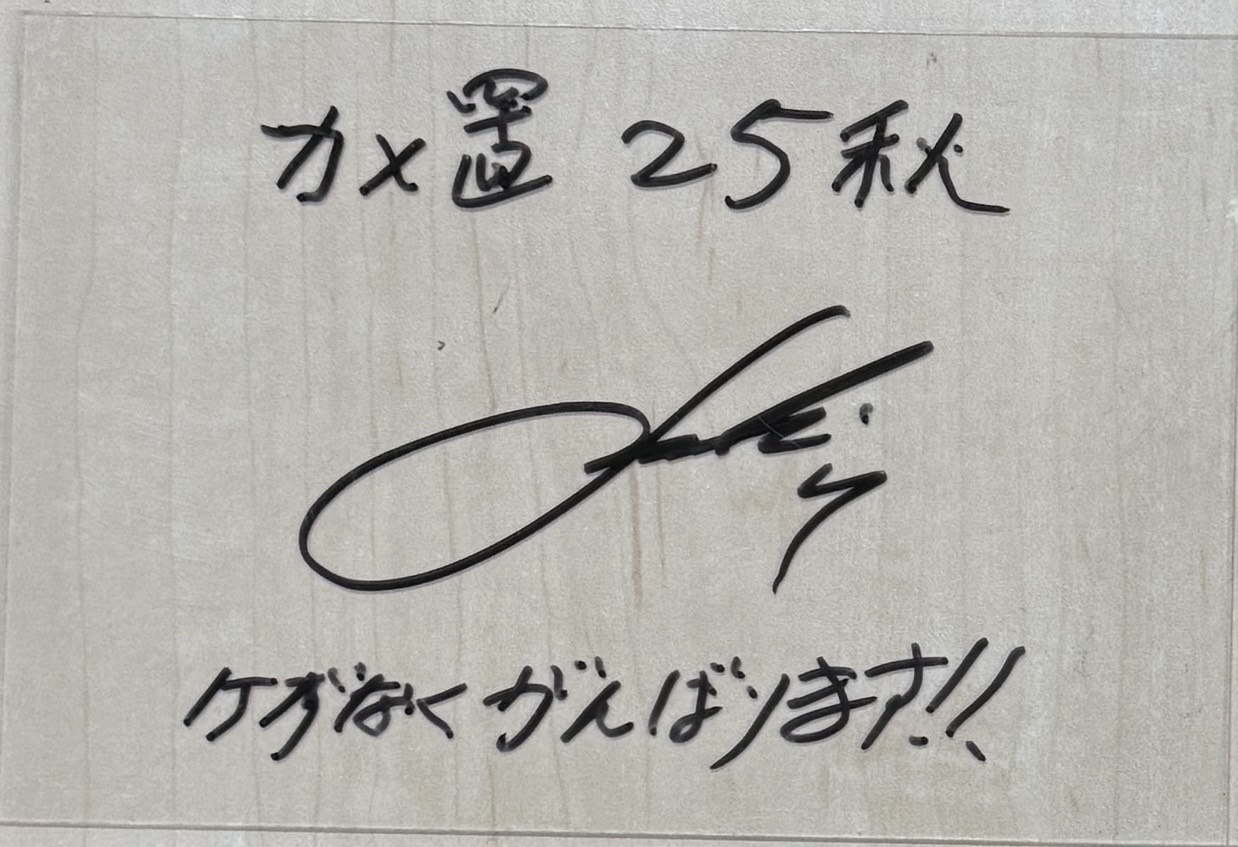 カメ置 25秋
ケガなくがんばります!!